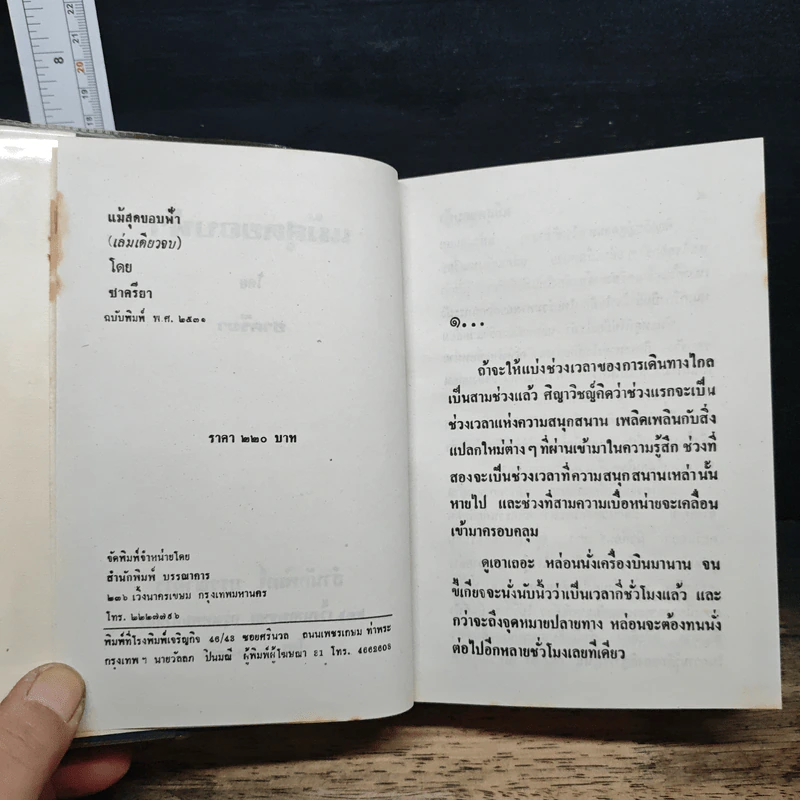 แม้สุดขอบฟ้า
(เล่มเดียวจบ)
โดย
ชาครียา
ฉบับพิมพ์ พ.ศ. ๒๕๓๑
ราคา ๒๒๐ บาท
จัดพิมพ์จำหน่ายโดย
สำนักพิมพ์ บรรณาคาร
๒๓๖ เวิ้งนาครเขษม กรุงเทพมหานคร
โทร. ๒๒๒๗๗๙๖
พิมพ์ที่โรงพิมพ์เจริญกิจ 46/43 ซอยศรีนวล ถนนเพชรเกษม ท่าพระ
กรุงเทพฯ นายวัลลภ ปิ่นมณี ผู้พิมพ์ผู้โฆษณา 31 โทร. 4662605
๑...
ถ้าจะให้แบ่งช่วงเวลาของการเดินทางไกล
เป็นสามช่วงแล้ว ศิญาวิชญ์คิดว่าช่วงแรกจะเป็น
ช่วงเวลาแห่งความสนุกสนาน เพลิดเพลินกับสิ่ง
แปลกใหม่ต่าง ๆ ที่ผ่านเข้ามาในความรู้สึก ช่วงที่
สองจะเป็นช่วงเวลาที่ความสนุกสนานเหล่านั้น
หายไป และช่วงที่สามความเบื่อหน่ายจะเคลื่อน
เข้ามาครอบคลุม
ดูเอาเถอะ หล่อนนั่งเครื่องบินมานาน จน
ขี้เกียจจะนั่งนับนิ้วว่าเป็นเวลากี่ชั่วโมงแล้ว และ
กว่าจะถึงจุดหมายปลายทาง หล่อนจะต้องทนนั่ง
ต่อไปอีกหลายชั่วโมงเลยทีเดียว
8
22
21
20
19
18